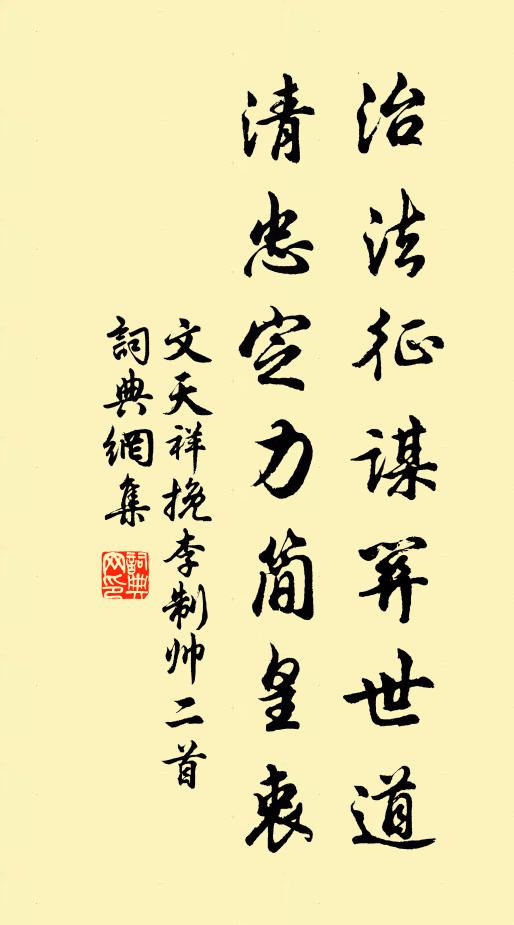 治法征謀關世道
清忠定力简皇衷
文天祥挽李制帅二首
詞典網集
詞典
网印